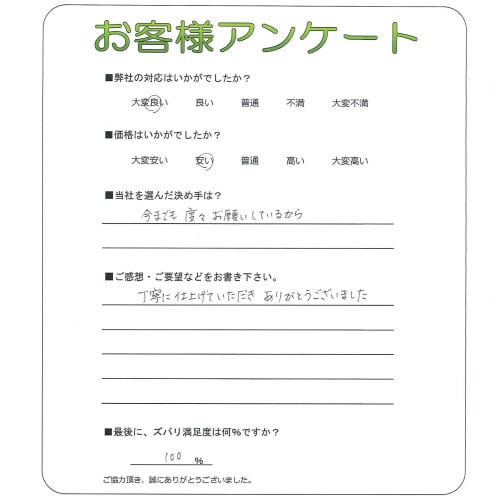 お客様アンケート
■弊社の対応はいかがでしたか？
大変良い 良い 普通 不満 大変不満
■価格はいかがでしたか？
大変安い 安い 普通 高い 大変高い
■当社を選んだ決め手は？
今までも 度々 お願いしているから
■ご感想・ご要望などをお書き下さい。
丁寧に仕上げていただき ありがとうございました
■最後に、ズバリ満足度は何％ですか？
100 ％
ご協力頂き、誠にありがとうございました。